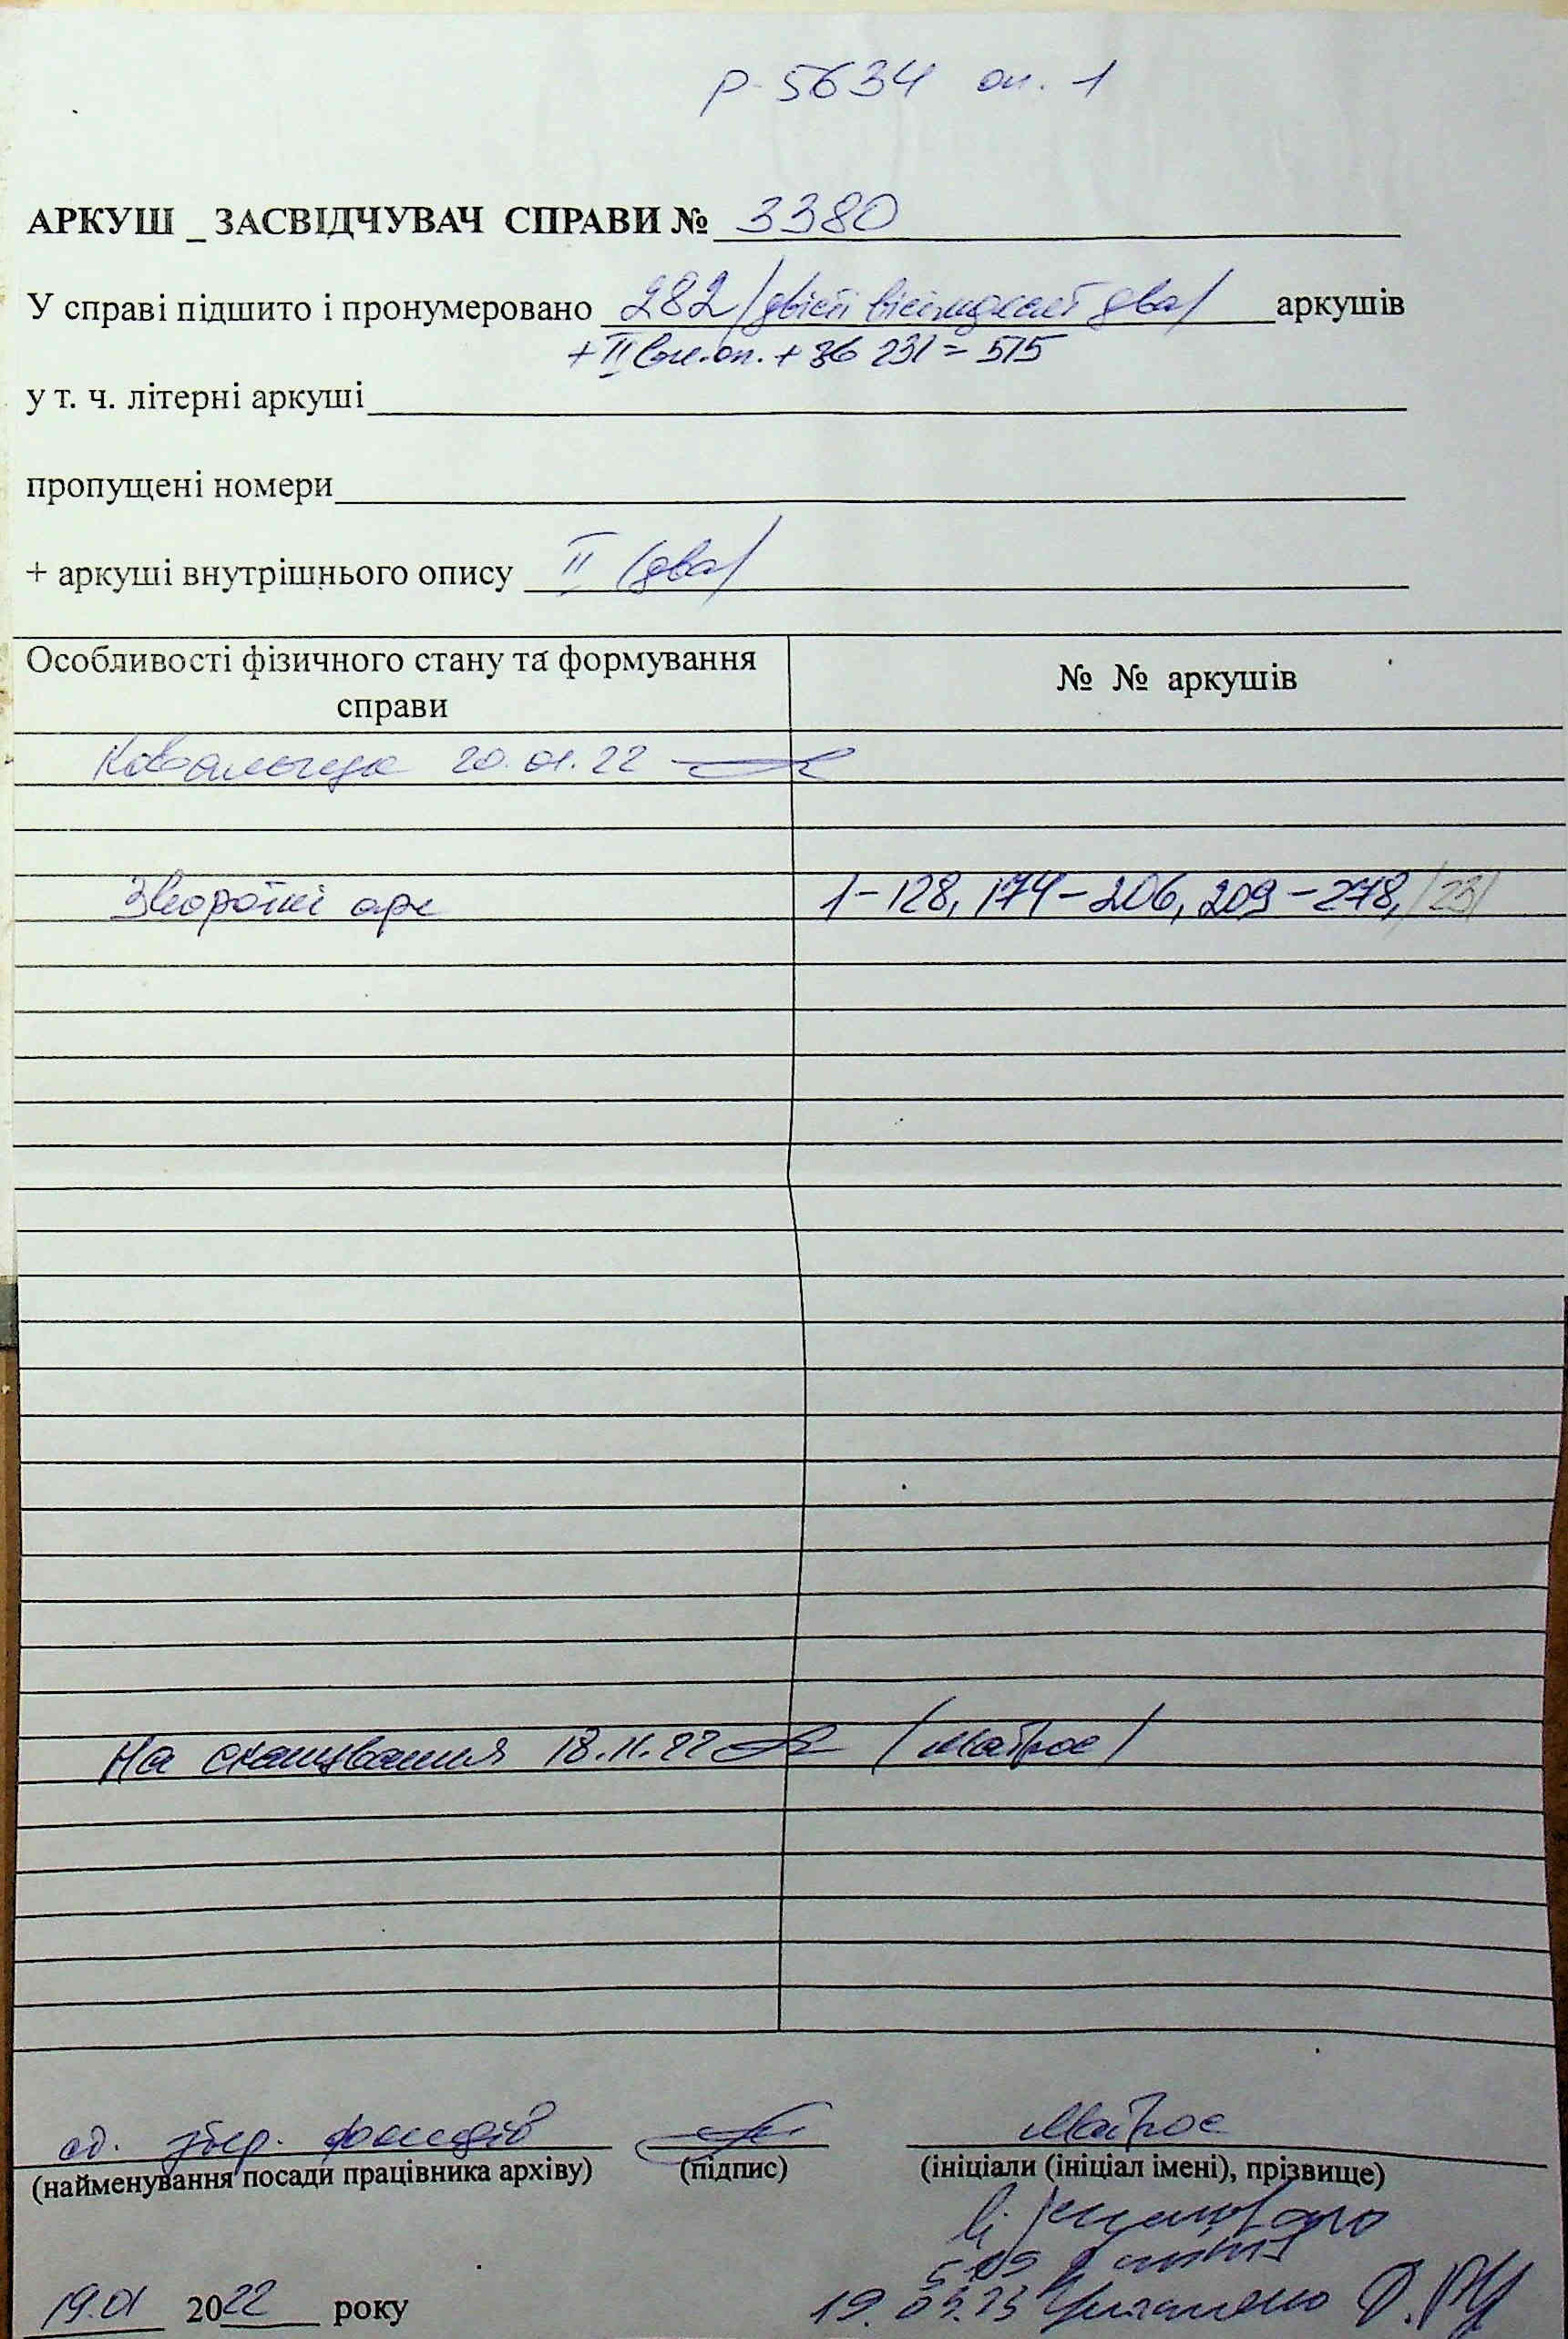 Р-5634 оп. 1
АРКУШ _ ЗАСВІДЧУВАЧ СПРАВИ № 3380
У справі підшито і пронумеровано 282 /двісті вісімдесят два/ аркушів
+ II вн.оп. + зв 231 = 515
у т. ч. літерні аркуші
пропущені номери
+ аркуші внутрішнього опису II /два/
Особливості фізичного стану та формування справи
№ № аркушів
20.01.22
Зворотні арк
1-128, 174-206, 209-278, /231
На сканування 18.11.22 /Матрос/
від. збер. фондів
Матрос
(найменування посади працівника архіву) (підпис) (ініціали (ініціал імені), прізвище)
19.01 2022 року
19.03.23